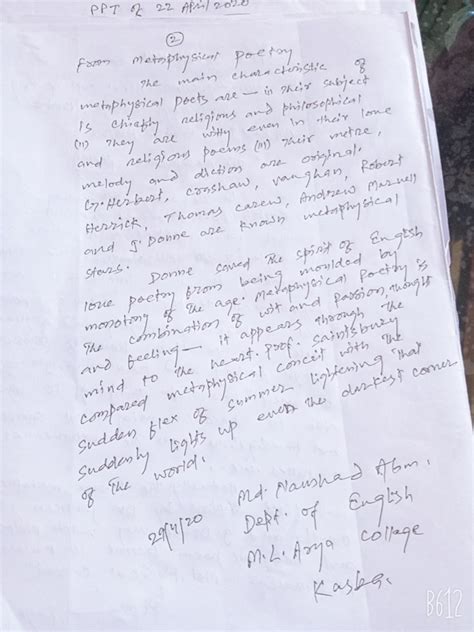 PPT of 22 April 2020
(2)
From Metaphysical Poetry
The main characteristic of
metaphysical poets are — in their subject
is chiefly religious and philosophical
(II) They are witty even in their love
and religious poems (III) Their metre,
melody and diction are original.
G. Herbert, Crashaw, Vaughan, Robert
Herrick, Thomas Carew, Andrew Marvell
and J. Donne are known metaphysical
stars.
Donne saved the spirit of English
love poetry from being moulded by
monotony of the age. Metaphysical Poetry is
the combination of wit and passion, thought
and feeling — it appears through the
mind to the heart. Prof. Saintsbury
compared metaphysical conceit with the
sudden flex of summer lightening that
suddenly lights up even the darkest corner
of the world.
Md. Naushad Alam.
29/4/20
Dept. of English
M.L. Arya College
Kasba.
B612